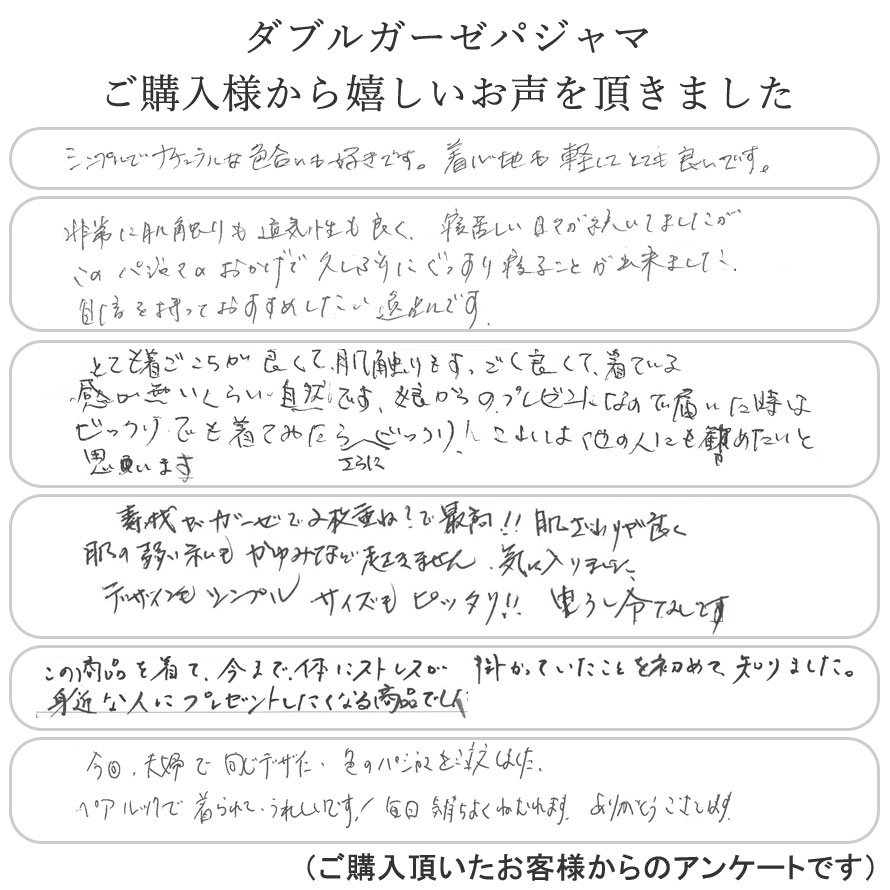 ダブルガーゼパジャマ
ご購入様から嬉しいお声を頂きました
シンプルでナチュラルな色合いも好きです。着心地も軽くてとても良いです。
非常に肌触りも通気性も良く、寝苦しい日々が続いてましたが
このパジャマのおかげで久しぶりにぐっすり寝ることが出来ました。
自信を持っておすすめしたい逸品です。
とても着ごこちが良くて、肌触りもすっごく良くて、着ている
感が無いくらい自然です。娘からのプレゼントなので届いた時は
びっくりでも着てみたらさらにびっくり! これは他の人にも勧めたいと
思います
素材がガーゼで2枚重ねで最高!! 肌ざわりが良く
肌の弱い私もかゆみなど起きません。気に入りました。
デザインもシンプル サイズもピッタリ!!
この商品を着て、今まで、体にストレスが掛かっていたことを初めて、知りました。
身近な人にプレゼントしたくなる商品でした
今回、夫婦で同じデザイン、色のパジャマを注文しました。
ペアルックで着られて、うれしいです! 毎日気持ちよくねむれます。ありがとうございます。
(ご購入頂いたお客様からのアンケートです)